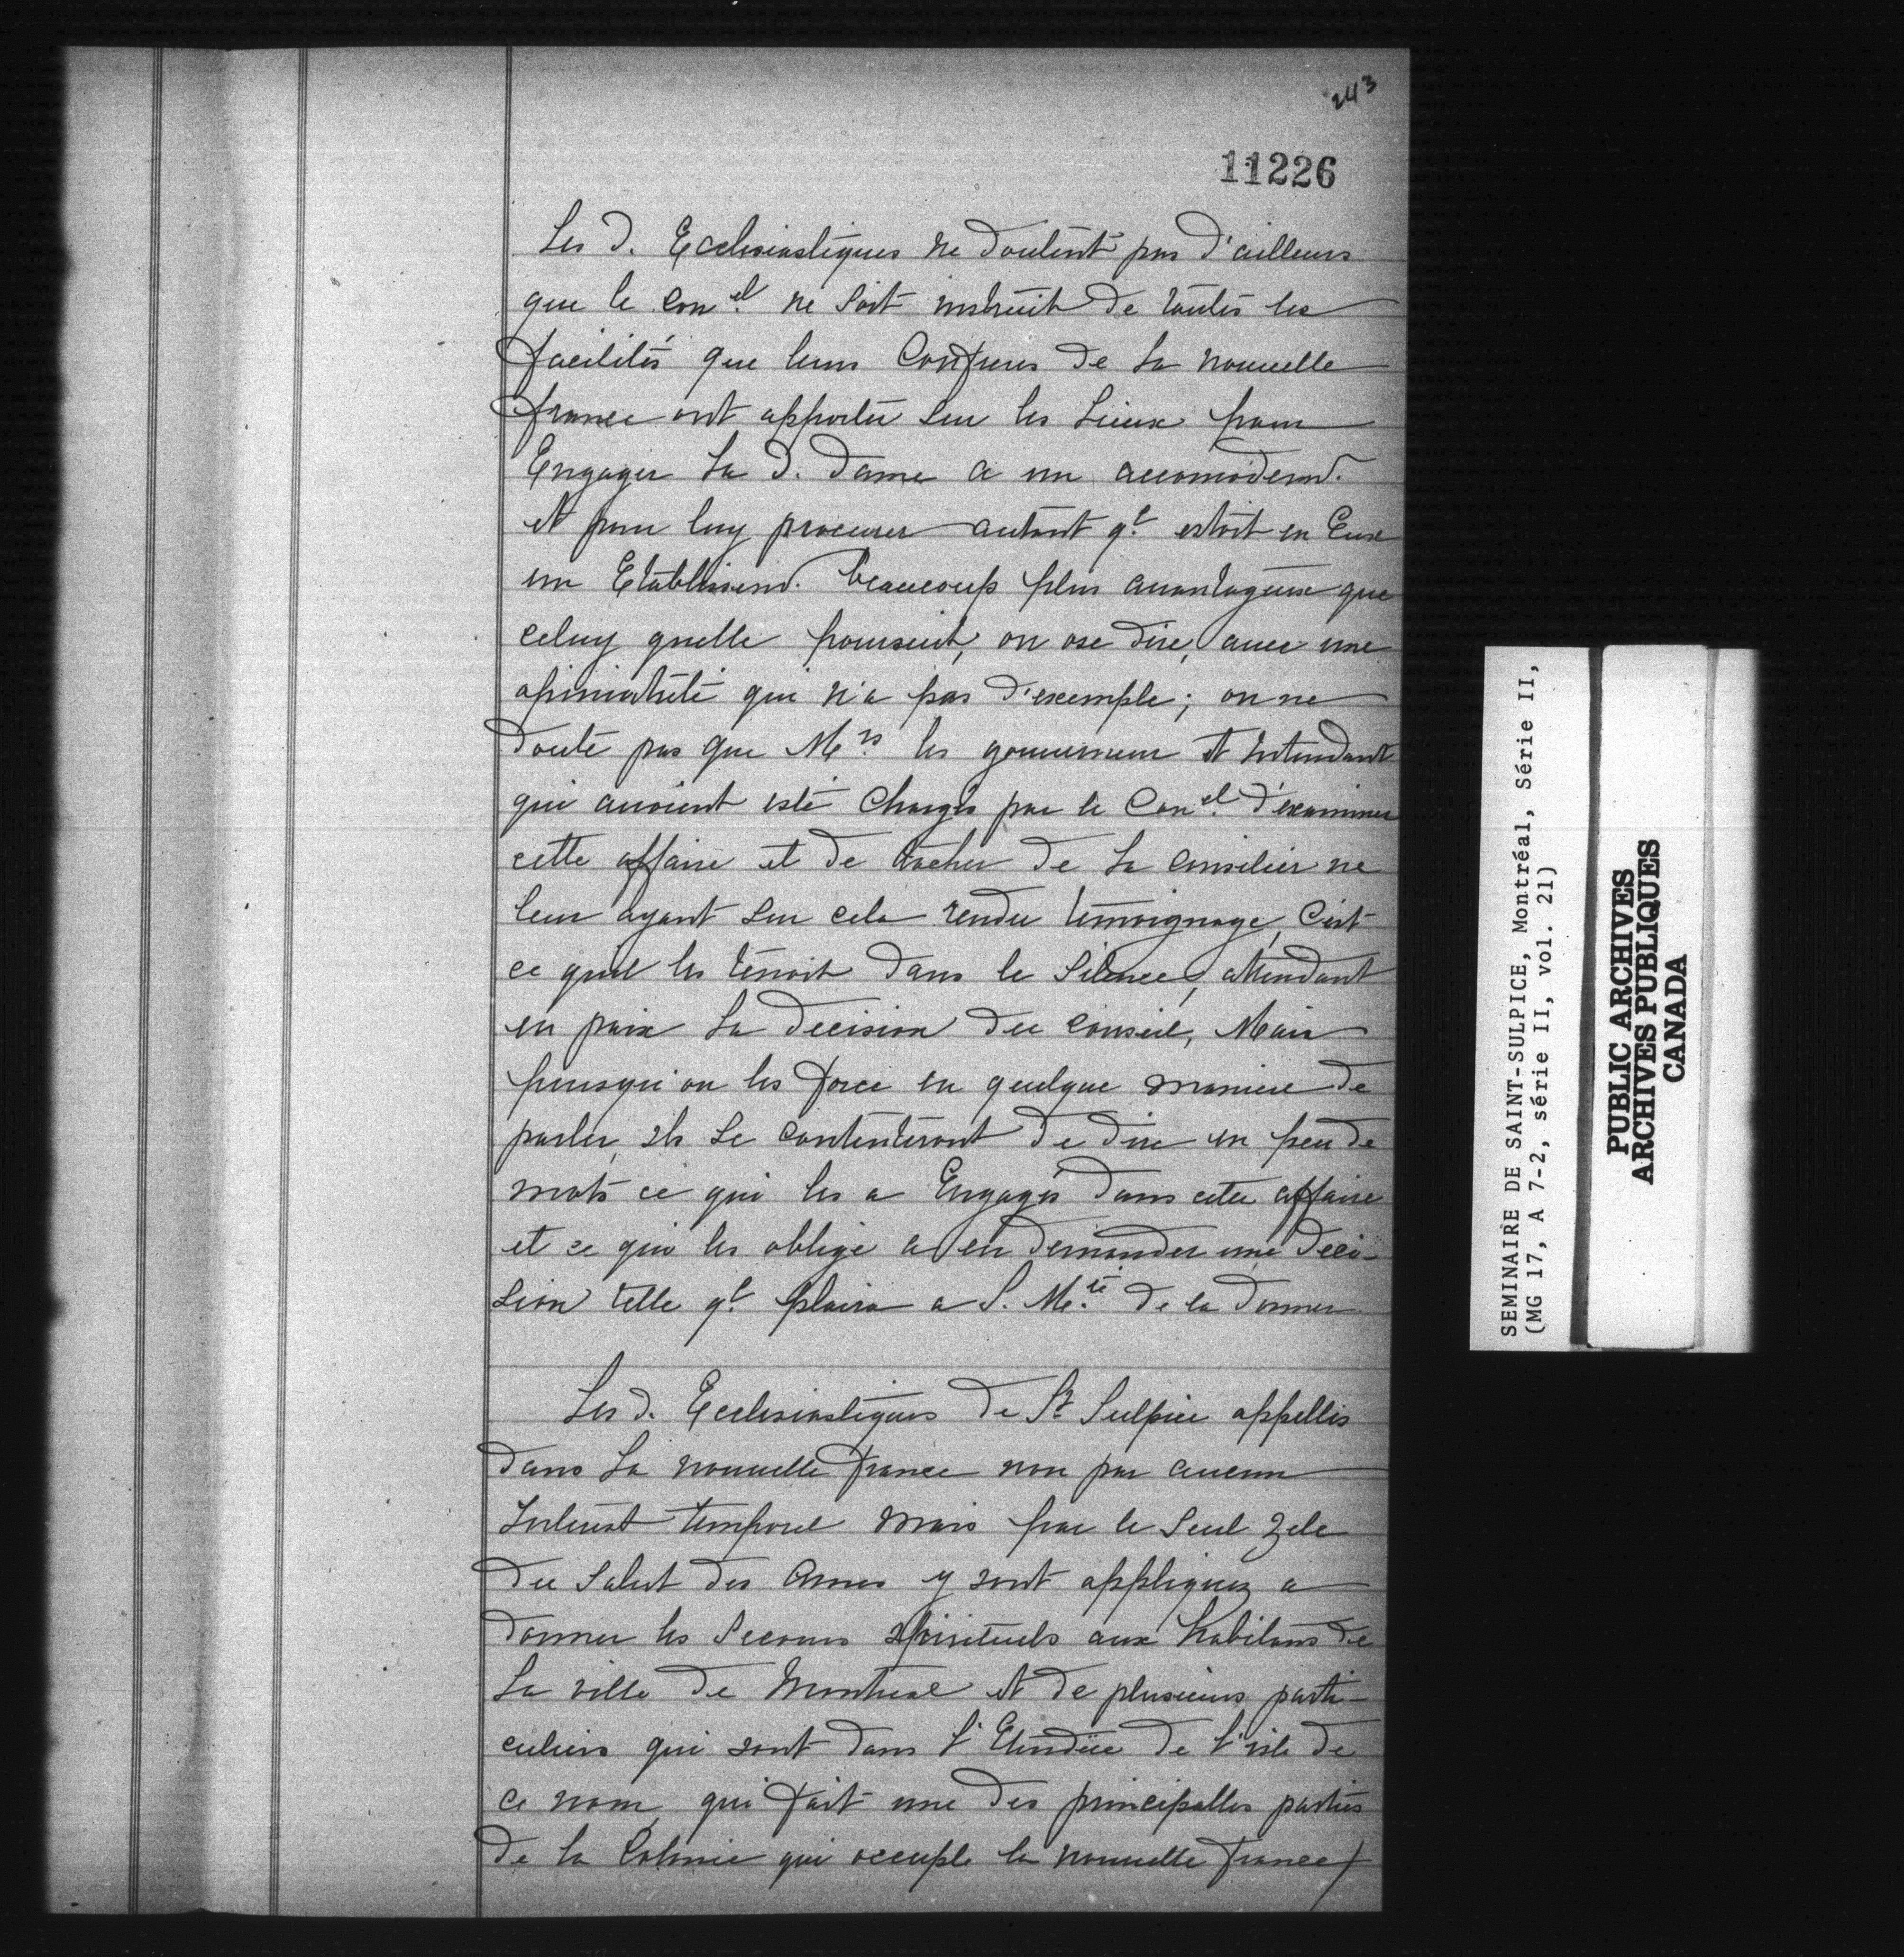 243
11226
Les d. Ecclesiastiques ne doutent pas d'ailleurs
que le con.el ne soit instruit de toutes les
facilités que leurs Confreres de la nouuelle
france ont apportée sur les Lieux pour
Engager la d. dame a un accomodem.t
et pour luy procurer autant q.l estoit en Eux
un Etablissem.t beaucoup plus auantageux que
celuy quelle poursuit, on ose dire, auec une
opiniatreté qui n'a pas d'exemple; on ne
doute pas que M.rs les gouuerneur et Intendant
qui auoient esté chargés par le Con.el d'examiner
cette affaire et de tacher de la concilier ne
leur ayant sur cela rendu temoignage, C'est
ce quil les tenoit dans le silence, attendant
en paix la decision du conseil, Mais
puisqu'on les force en quelque maniere de
parler, ils se contenteront de dire en peu de
mots ce qui les a Engagés dans cette affaire
et ce qui les oblige a en demander une deci-
sion telle q.l plaira a S. M.té de la donner.
Les d. Ecclesiastiques de St. Sulpice appellés
dans la nouuelle france non par aucun
Interest temporel mais par le seul zele
du salut des ames y sont appliquez a
donner les secours spirituels aux habitans de
la ville de Montreal et de plusieurs parti-
culiers qui sont dans l'Etendüe de l'isle de
ce nom, qui fait une des principalles parties
de la Colonie qui occupe la nouuelle france/
SEMINAIRE DE SAINT-SULPICE, Montréal, Série II,
(MG 17, A 7-2, série II, vol. 21)
PUBLIC ARCHIVES
ARCHIVES PUBLIQUES
CANADA